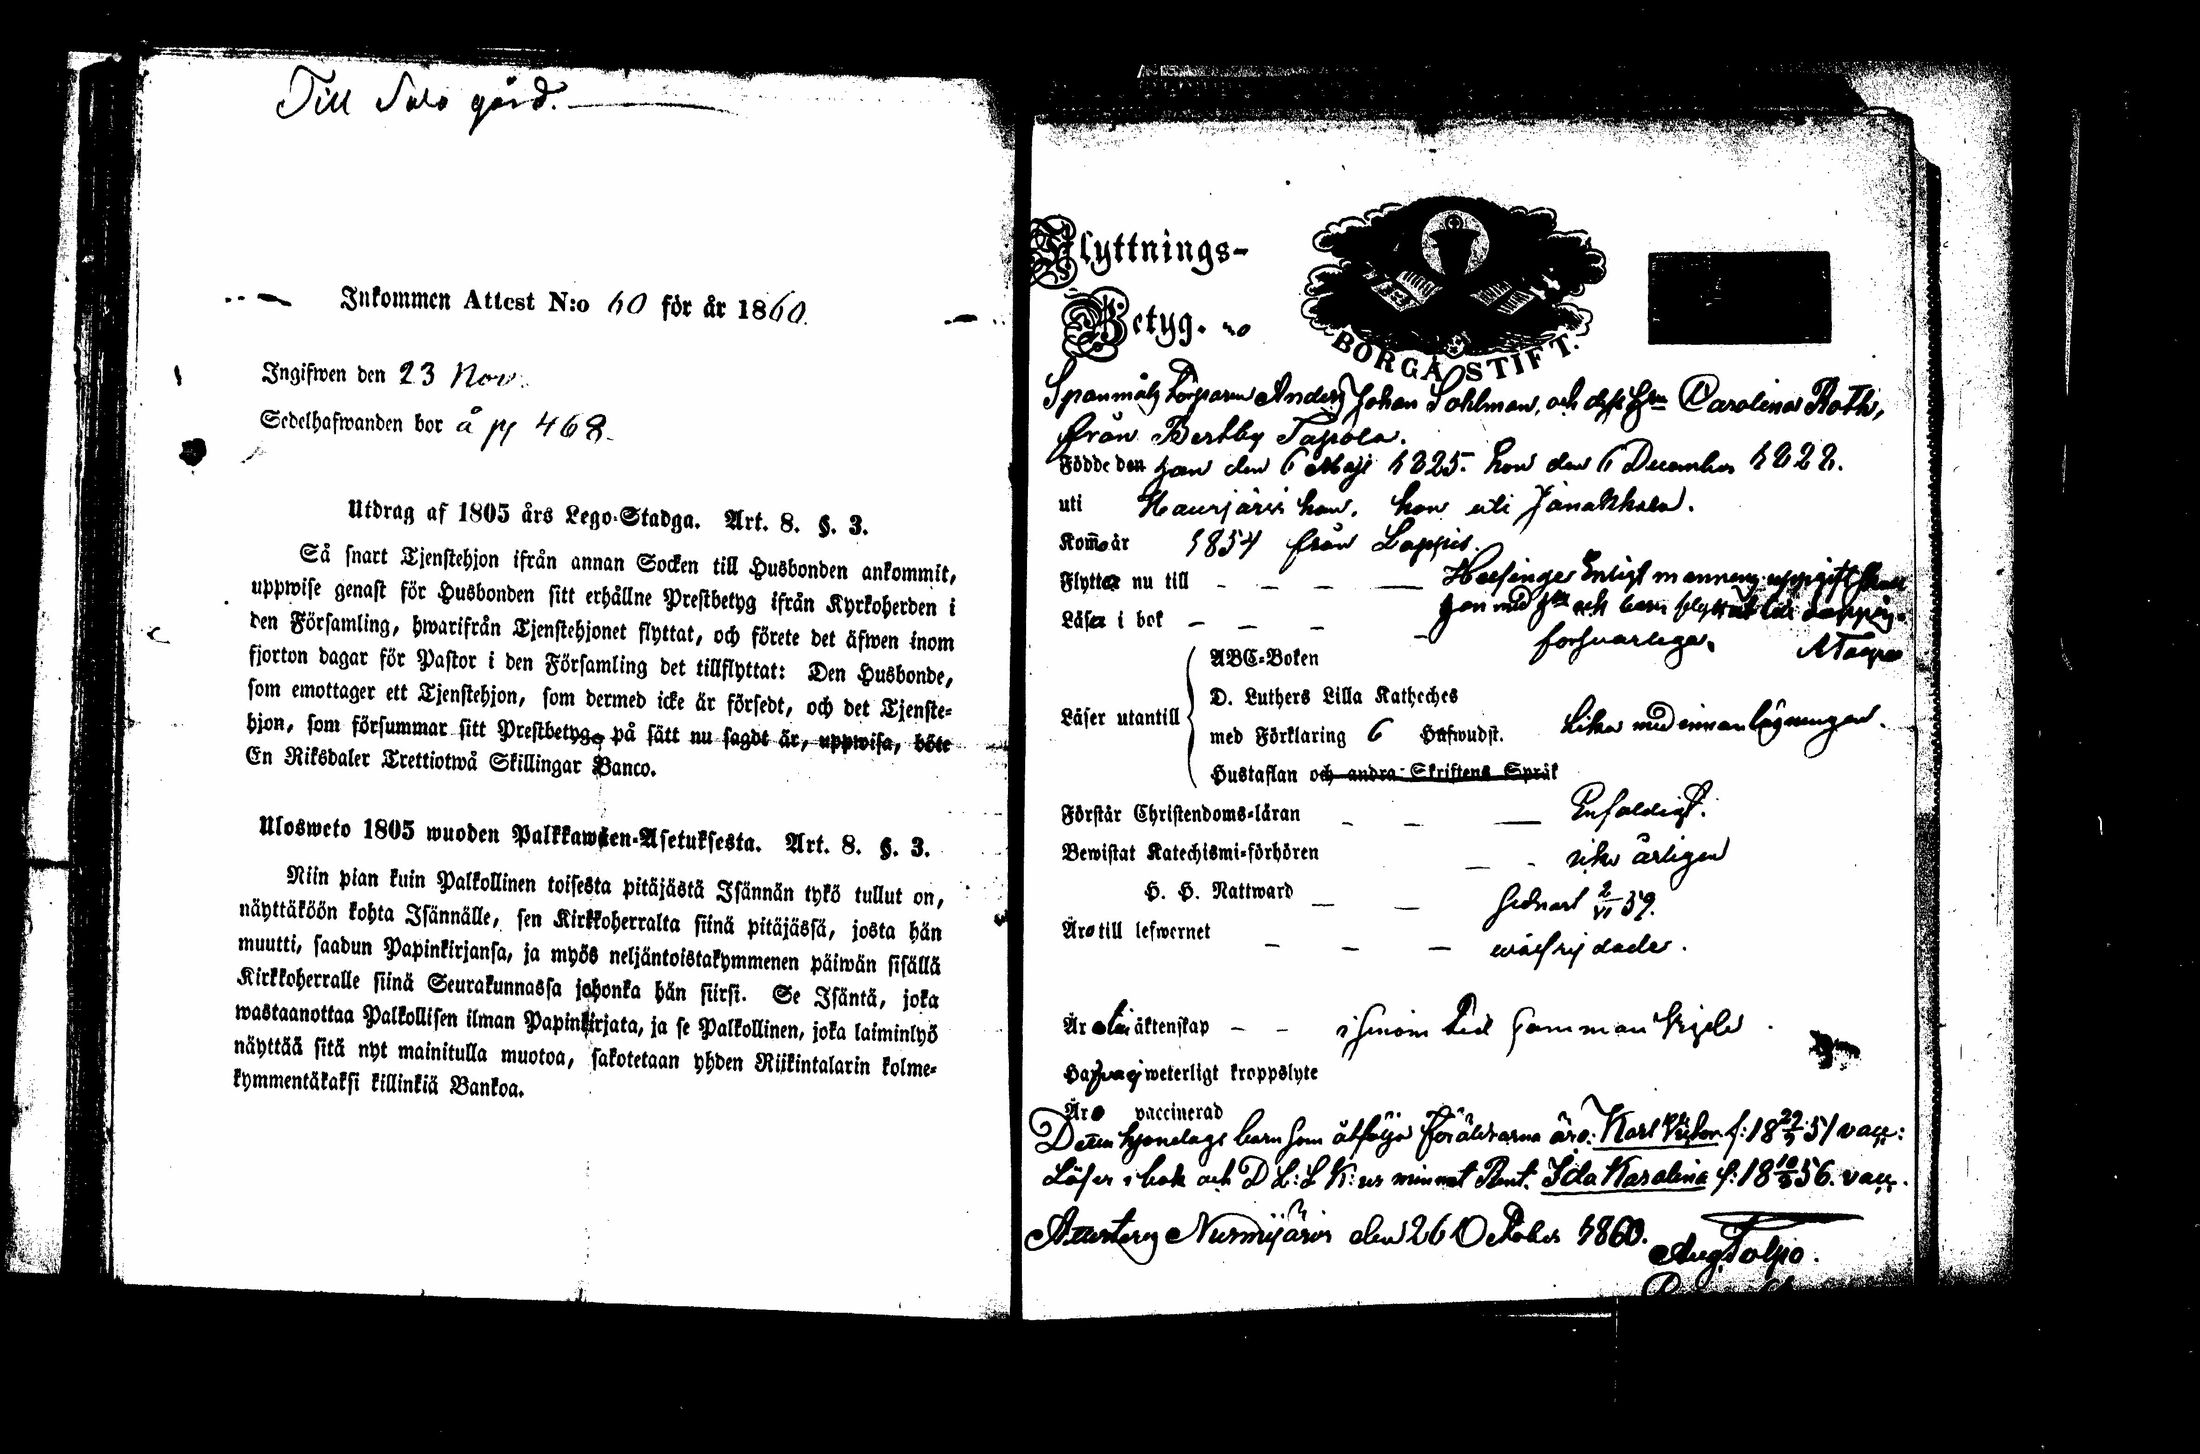 Till Salo gård.
Inkommen Attest N:o 60 för år 1860.
Ingifwen den 23 Nov.
Sedelhafwanden bor å p 468.
Utdrag af 1805 års Lego-Stadga. Art. 8. §. 3.
Så snart Tjenstehjon ifrån annan Socken till Husbonden ankommit,
uppwise genast för Husbonden sitt erhållne Prestbetyg ifrån Kyrkoherden i
den Församling, hwarifrån Tjenstehjonet flyttat, och förete det äfwen inom
fjorton dagar för Pastor i den Församling det tillflyttat: Den Husbonde,
som emottager ett Tjenstehjon, som dermed icke är försedt, och det Tjenste-
hjon, som försummar sitt Prestbetyg, på sätt nu sagdt är, uppwisa, böte
En Riksdaler Trettiotwå Skillingar Banco.
Ulosweto 1805 wuoden Palkkawäen-Asetuksesta. Art. 8. §. 3.
Niin pian kuin Palkollinen toisesta pitäjästä Isännän tykö tullut on,
näyttäköön kohta Isännälle, sen Kirkkoherralta siinä pitäjässä, josta hän
muutti, saadun Papinkirjansa, ja myös neljäntoistakymmenen päiwän sisällä
Kirkkoherralle siinä Seurakunnassa johonka hän siirsi. Se Isäntä, joka
wastaanottaa Palkollisen ilman Papinkirjata, ja se Palkollinen, joka laiminlyö
näyttää sitä nyt mainitulla muotoa, sakotetaan yhden Riikintalarin kolme-
kymmentäkaksi killinkiä Bankoa.
Flyttnings-
Betyg.
BORGÅ STIFT.
Spanmåls Torparen Anders Johan Sohlman, och dess Hru Carolina Roth,
från Bertby Tapola.
Födde den han den 6 Maji 1825. hon den 6 December 1828.
uti Hausjärvi han, hon uti Janakkala.
Kom̄o år 1854 från Loppis.
Flytta nu till Helsinge Enligt mannens uppgift skall
Läsa i bok han med Hru och barn flyttat till Loppis
försvarliga.
Läser utantill
ABC-Boken
D. Luthers Lilla Katheches
med Förklaring 6 Hufwudst. Lika med innanläsningen.
Hustaflan och andra Skriftens Språk
Förstår Christendoms-läran Enfaldigt.
Bewistat Katechismi-förhören icke årligen
H. H. Nattward sednast 2/VI 59.
Äro till lefwernet wälfrejdade.
Äro i äktenskap
Hafva ej weterligt kroppslyte
Äro vaccinerad
Detta hjonelags barn som åtfölja föräldrarna äro: Karl Viktor f: 18 22/3 51 vacc:
Läser i bok och D L: L K: ur minnet Ida Karolina f: 18 10/3 56. vacc.
Attesterar Nurmijärvi den 26 October 1860.
Aug. Talpo.